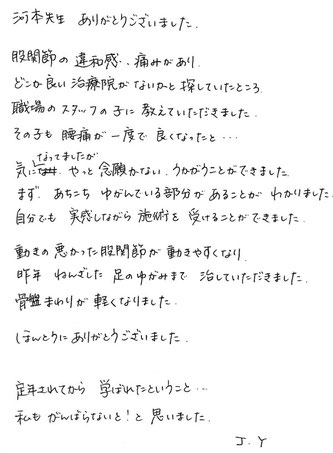 河本先生 ありがとうございました.
股関節の違和感、痛みがあり、
どこか良い治療院がないかと探していたところ
職場のスタッフの子に教えていただきました.
その子も腰痛が一度で良くなったと…
なってましたが
気に やっと念願かない、うかがうことができました.
まず、あちこちゆがんでいる部分があることがわかりました.
自分でも実感しながら施術を受けることができました.
動きの悪かった股関節が動きやすくなり
昨年ねんざした足のゆがみまで治していただきました.
骨盤まわりが軽くなりました.
ほんとうにありがとうございました.
定年されてから学ばれたということ…
私もがんばらないと!と思いました.
J.Y